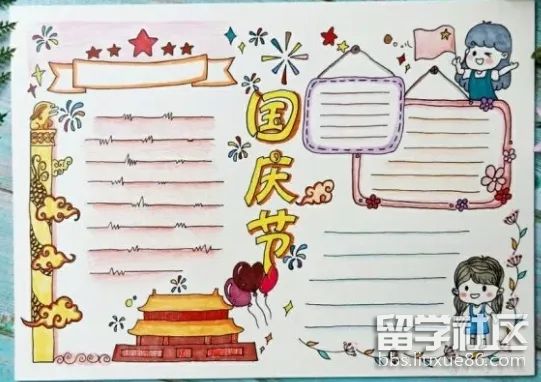 国庆节
留学社区
bbs.liuxue86.com